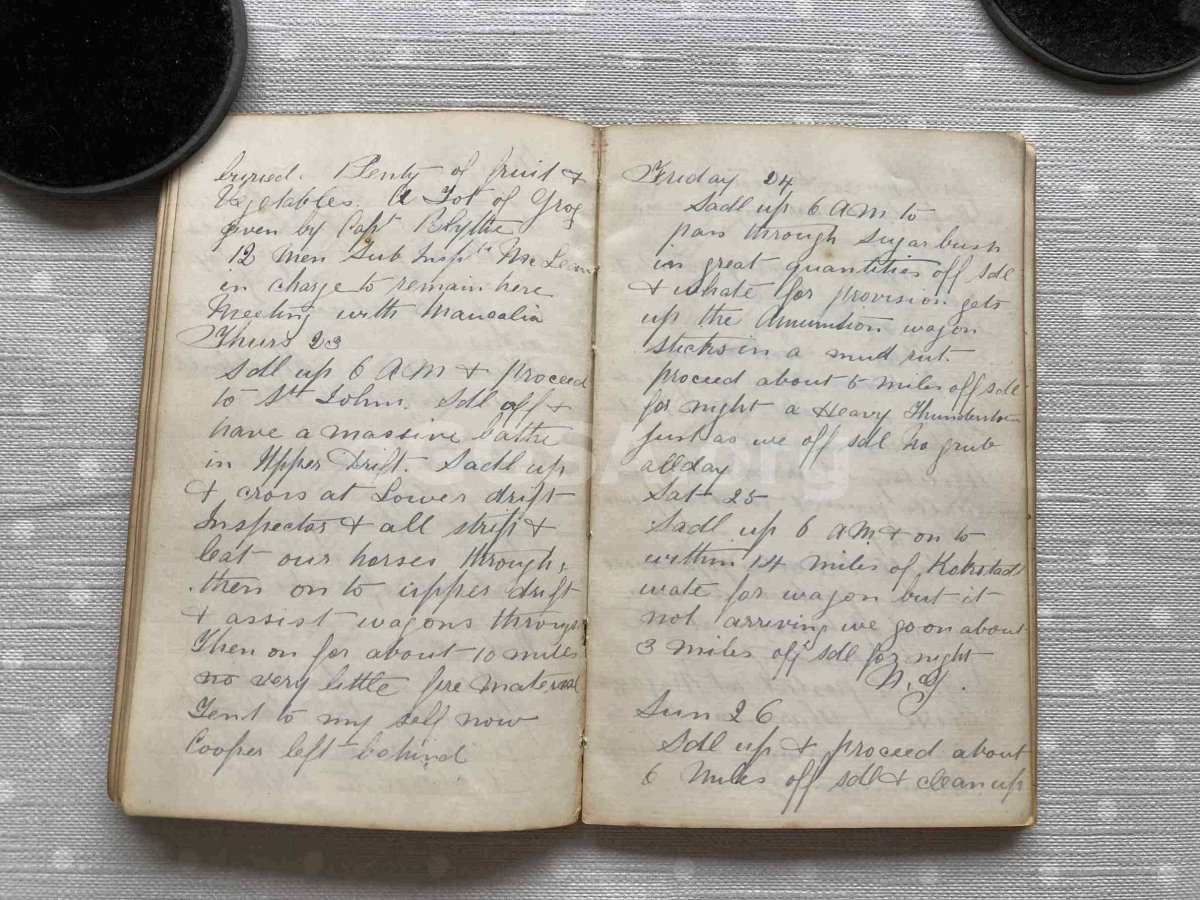 buried. Plenty of fruit &
Vegetables. A Tot of Grog
given by Capt Blythe
12 men Sub Inspctr McLean
in charge to remain here
Meeting with
Thurs 23
Sdl up 6 AM & proceed
to St Johns. Sdl off &
have a massive bathe
in Upper Drift. Sadl up
& cross at Lower drift
Inspector & all strip &
leat our horses through,
then on to upper drift
& assist wagons through
Then on for about 10 miles
no very little fire material
Tent to my self now
Cooper left behind
Friday 24
Sadl up 6 AM to
pass through Sugar bush
in great quantities off sdl
& whate for provision gets
up the Amunition wagon
sticks in a mud rut.
proceed about 5 miles off sdl
for night a Heavy Thunderstorm
just as we off sdl No grub
allday
Sat 25
Sadl up 6 AM & on to
within 14 miles of Kokstadt
wate for wagon but it
not arriving we go on about
3 miles off sdl for night
Sun 26
Sdl up & proceed about
6 Miles off sdl & clean up
GOSA.org